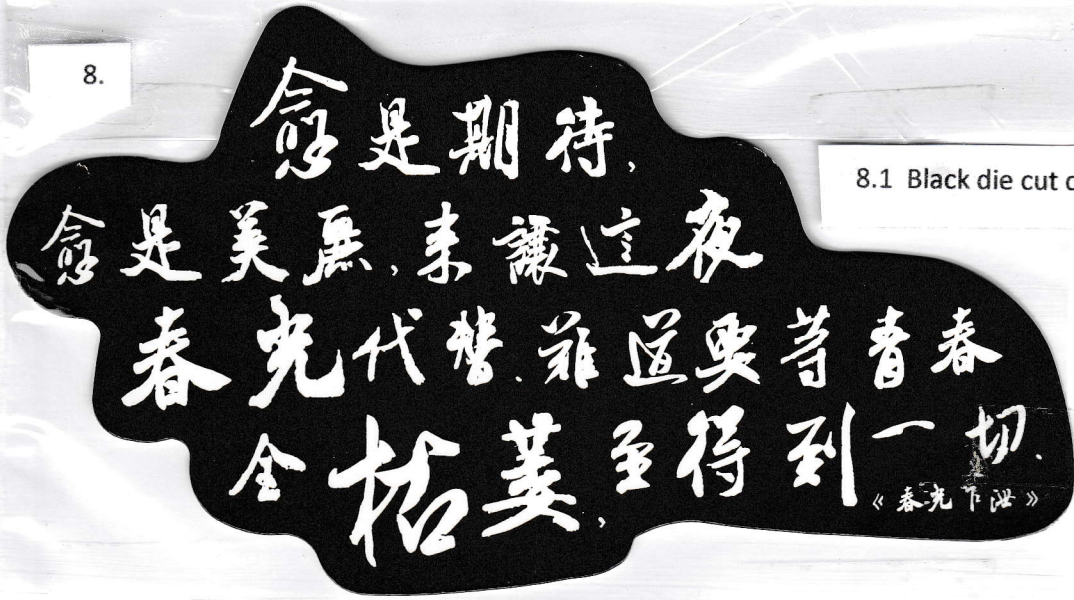 8.
愈是期待,
8.1 Black die cut c
愈是美麗,来讓這夜
春光代替.難道要等青春
全枯萎,至得到一切.
《春光乍洩》